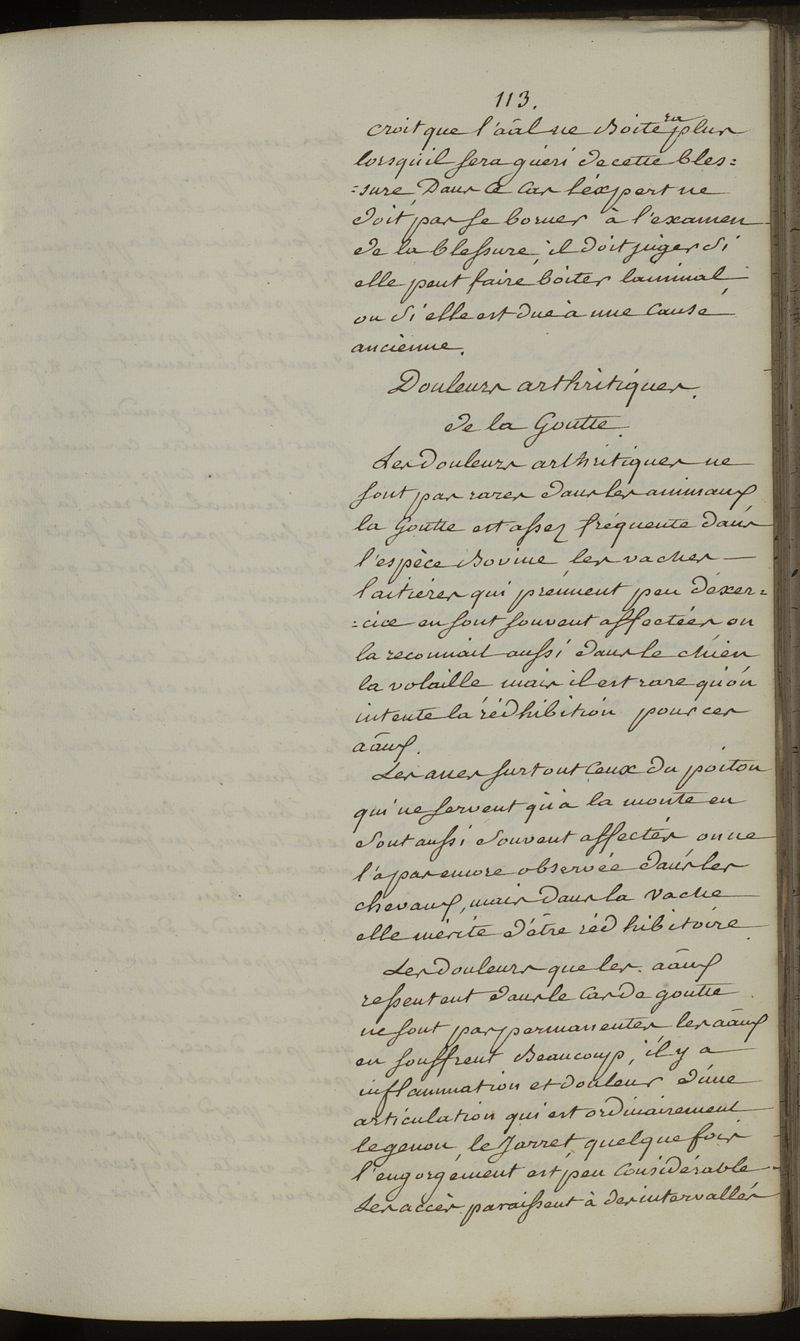 113.
croit que l'aâl ne Boitera plus
lorsqu'il sera guéri de cette bles=
=sure Dans ce cas l'éxpert ne
doit pas se borner à l'examen
de la blessure, il doit juger si
elle peut faire boiter lanimal
ou si elle est due à une cause
ancienne.
Douleurs arthritiques.
de la Goutte.
Les douleurs arthritiques ne
sont pas rares dans les animaux
la Goutte est assez fréquente dans
l'espèce Bovine les vaches
laitières qui prénnent peu d'éxer=
=cice en sont souvent affectées on
la reconnait aussi dans le chien
la volaille mais il est rare qu'on
intente la rédhibition pour ces
aâux.
Les anes surtout ceux du poitou
qui ne servent qu'à la monte en
sont aussi souvent affectés on ne
l'a pas encore observée dans les
chevaux, mais dans la vache
elle mérite d'être rédhibitoire
Les douleurs que les aâux
ressentent dans le cas de goutte
ne sont pas permanentes les aâux
en souffrent Beaucoup, il y a
inflammation et douleur d'une
articulation qui est ordinairement
le genou, le Jarret quelque fois
l'engorgément est peu considérable.
Les accès paraissent à des intervalles